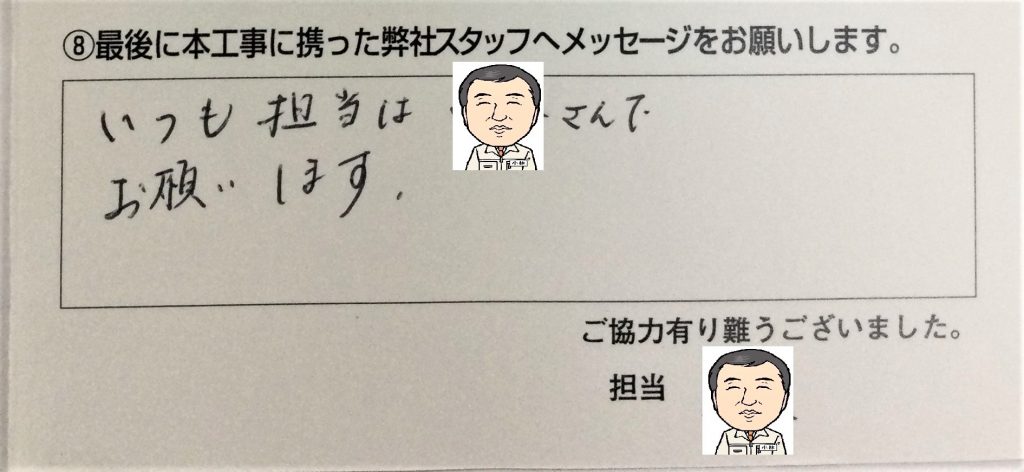 ⑧最後に本工事に携った弊社スタッフへメッセージをお願いします。
いつも担当は さんで
お願いします.
ご協力有り難うございました。
担当